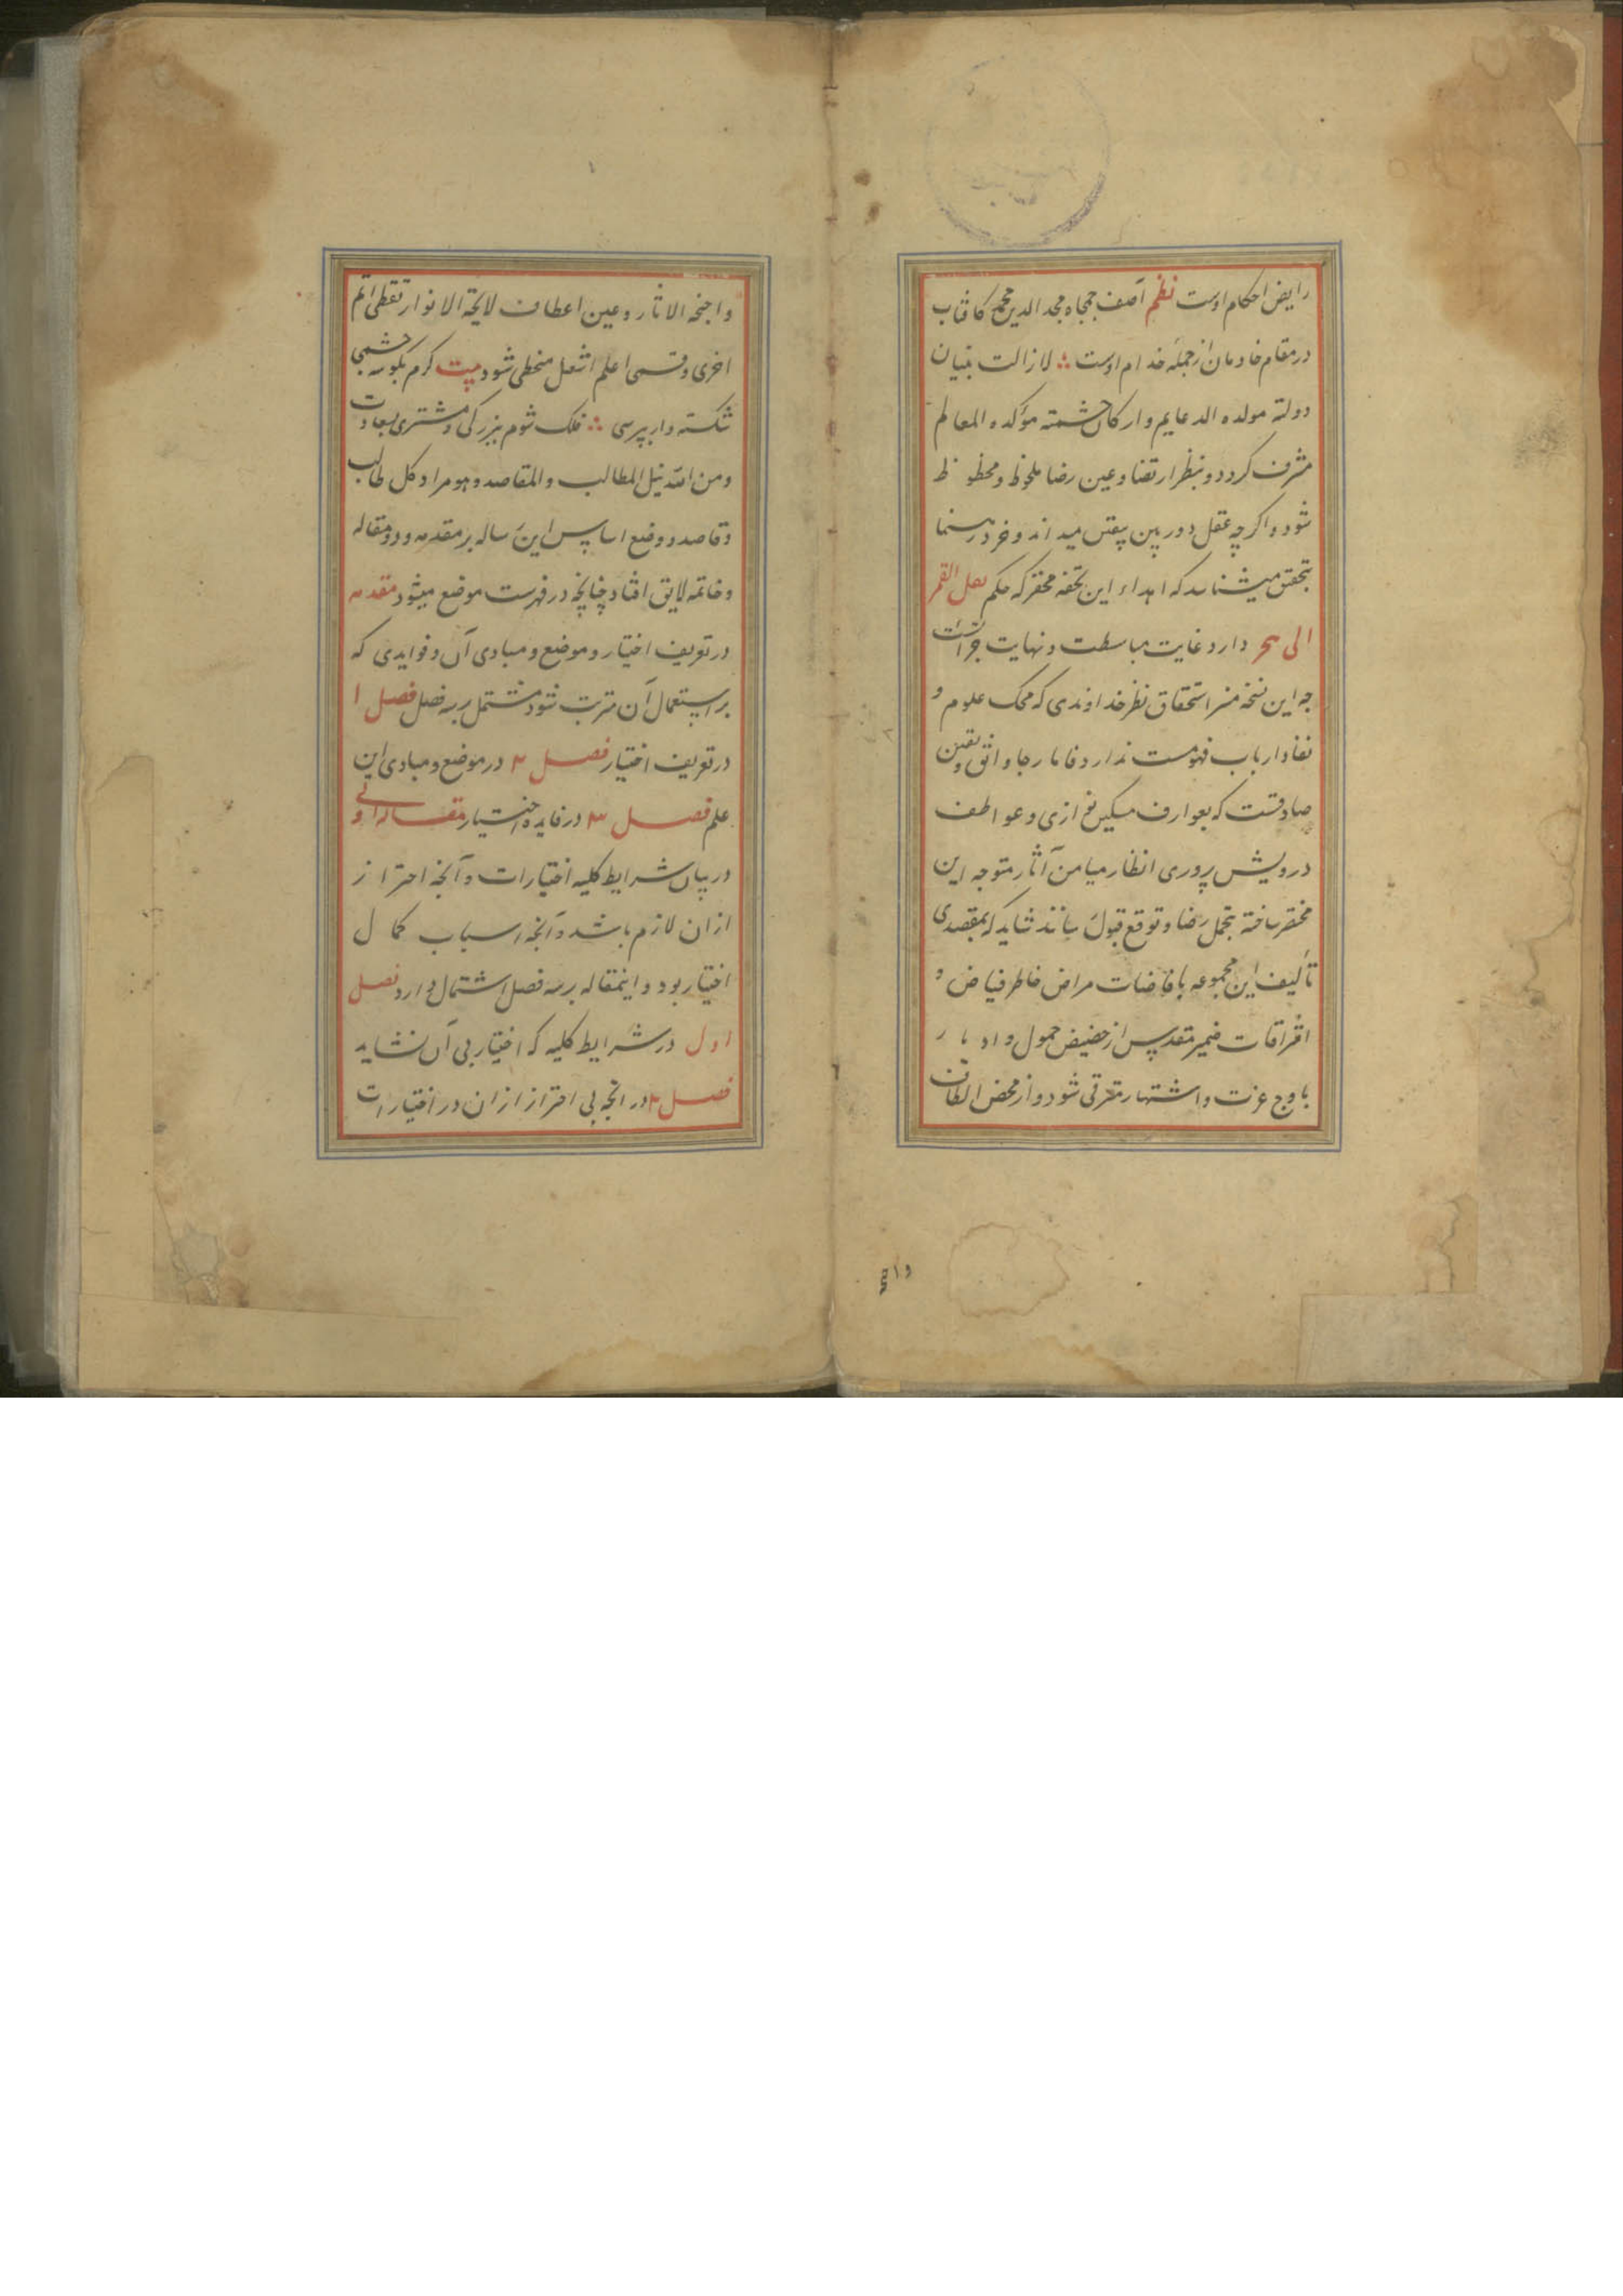 رایض احکام اوست نظم آصف جمجاه مجد الدین محمد کافتاب
در مقام خادمان از جمله خدام اوست لا زالت بنیان
دولته مولده الدعایم و ارکان حشمته مؤکده المعالم
مشرف کردد و بنظر ارتضا و عین رضا ملحوظ و محظوظ
شود و اکرچه عقل دوربین بیقین میداند و خرد رهنما
بتحقیق میشناسد که اهداء این تحفه محقر که حکم نقل التمر
الی هجر دارد غایت مباسطت و نهایت جرأتست
چه این نسخه منزا استحقاق نظر خداوندی که محک علوم و
نقاد ارباب فهومست ندارد فاما رجا واثق و یقین
صادقست که بعوارف مسکین نوازی و عواطف
درویش پروری انظار میامن آثار متوجه این
مختصر ساخته بتجمل رضا و توقع قبول رسانند شاید که بمقصدی
تألیف این مجموعه بافاضات مراض خاطر فیاض و
اشراقات ضمیر مقدس از حضیض خمول و ادبار
باوج عزت و اشتهار مترقی شود و از محض الطاف
واجخه الاثار و عین اعطاف لایحة الانوار تقطی اتم
اخری و قسمی اعلم اشمل منحظی شود بیت کرم بکوشه چشمی
شکسته وار بپرسی فلک شوم ببزرکی و مشتری بسعادت
و من الله نیل المطالب و المقاصد و هو مراد کل طالب
و قاصد و وضع اساس این رساله بر مقدمه و دو مقاله
و خاتمه لایق افتاد چنانچه در فهرست موضع میشود مقدمه
در تعریف اختیار و موضع و مبادی آن و فوایدی که
بر استعمال آن مترتب شود مشتمل بر سه فصل فصل ۱
در تعریف اختیار فصل ۲ در موضع و مبادی این
علم فصل ۳ در فایده اختیار مقاله اولی
در بیان شرایط کلیه اختیارات و آنچه احتراز
ازان لازم باشد و آنچه اسباب کمال
اختیار بود و اینمقاله بر سه فصل اشتمال دارد فصل
اول در شرایط کلیه که اختیار بی آن نشاید
فصل ۲ در انچه بی احتراز ازان در اختیارات